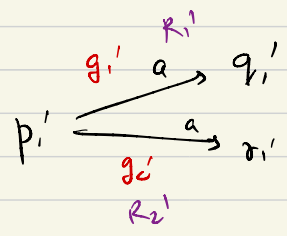 R₁'
g₁' a q₁'
p₁' a r₁'
g₂'
R₂'